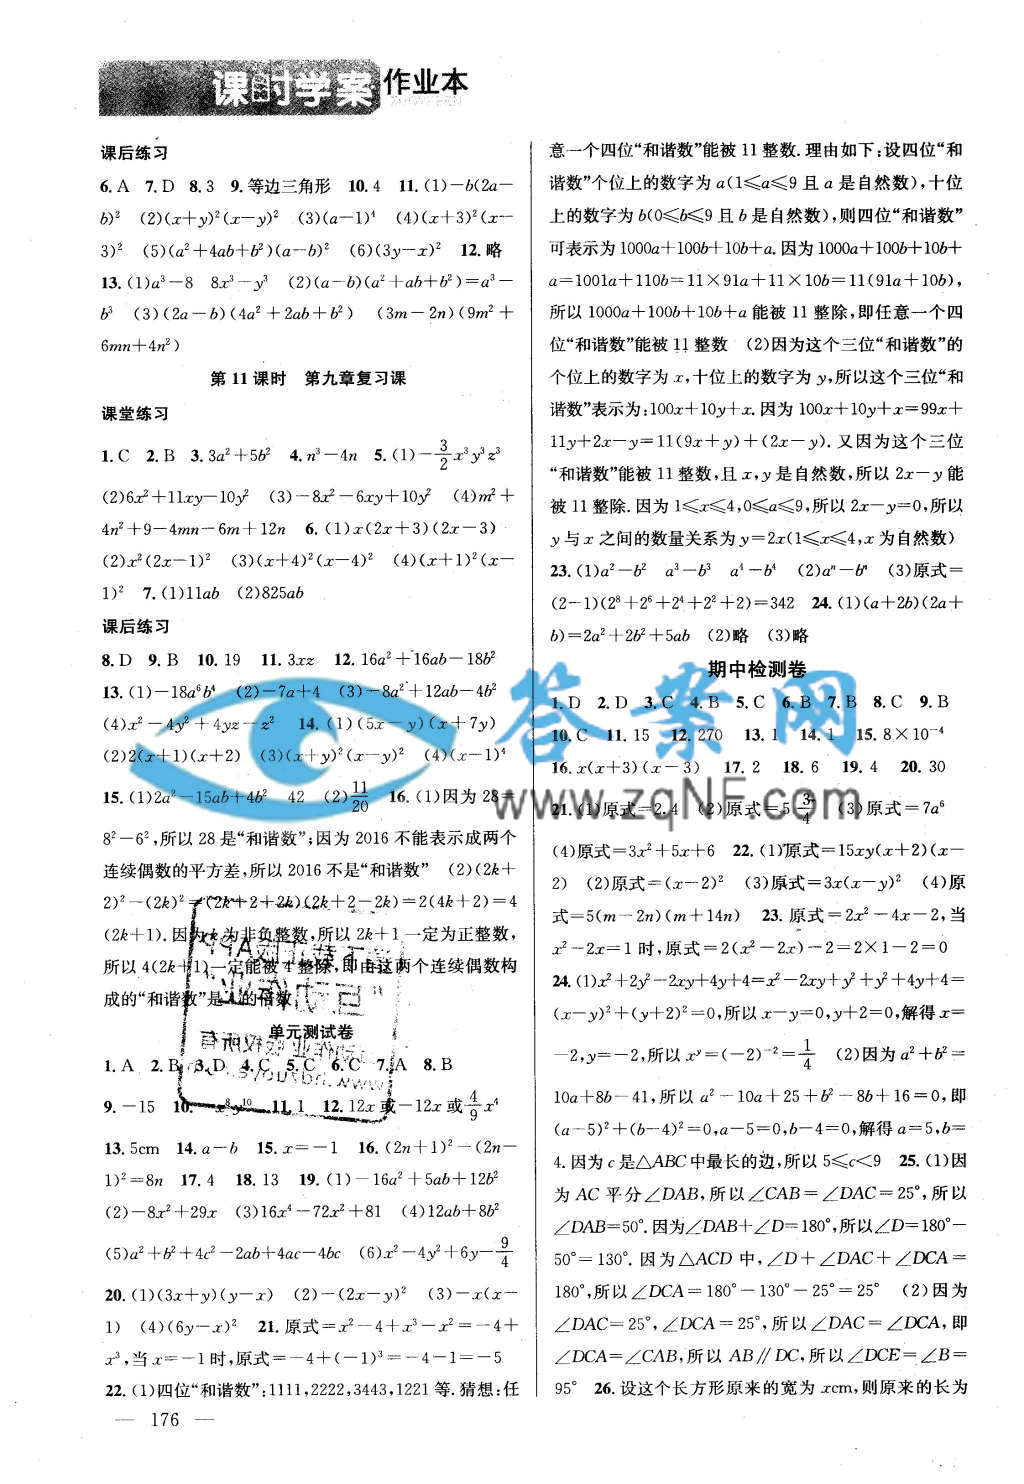 课时学案 作业本
课后练习
6. A 7. D 8. 3 9. 等边三角形 10. 4 11. (1)-b(2a-
b)² (2)(x+y)²(x-y)² (3)(a-1)⁴ (4)(x+3)²(x-
3)² (5)(a²+4ab+b²)(a-b)² (6)(3y-x)² 12. 略
13. (1)a³-8 8x³-y³ (2)(a-b)(a²+ab+b²)=a³-
b³ (3)(2a-b)(4a²+2ab+b²) (3m-2n)(9m²+
6mn+4n²)
第 11 课时 第九章复习课
课堂练习
1. C 2. B 3. 3a²+5b² 4. n³-4n 5. (1)-3/2x³y³z³
(2)6x²+11xy-10y² (3)-8x²-6xy+10y² (4)m²+
4n²+9-4mn-6m+12n 6. (1)x(2x+3)(2x-3)
(2)x²(2x-1)² (3)(x+4)²(x-4)² (4)(x+1)²(x-
1)² 7. (1)11ab (2)825ab
课后练习
8. D 9. B 10. 19 11. 3xz 12. 16a²+16ab-18b²
13. (1)-18a⁶b⁴ (2)-7a+4 (3)-8a²+12ab-4b²
(4)x²-4y²+4yz-z² 14. (1)(5x-y)(x+7y)
(2)2(x+1)(x+2) (3)(x+y)²(x-y)² (4)(x-1)⁴
15. (1)2a²-15ab+4b² 42 (2)11/20 16. (1)因为 28=
8²-6²,所以 28 是“和谐数”;因为 2016 不能表示成两个
连续偶数的平方差,所以 2016 不是“和谐数” (2)(2k+
2)²-(2k)²=(2k+2+2k)(2k+2-2k)=2(4k+2)=4
(2k+1). 因为 k 为非负整数,所以 2k+1 一定为正整数,
所以 4(2k+1)一定能被 4 整除,即由这两个连续偶数构
成的“和谐数”是 的倍数
单元测试卷
1. A 2. B 3. D 4. C 5. C 6. C 7. A 8. B
9. -15 10. 11. 1 12. 12x 或-12x 或 4/9 x⁴
13. 5cm 14. a-b 15. x=-1 16. (2n+1)²-(2n-
1)²=8n 17. 4 18. 13 19. (1)-16a²+5ab+12b²
(2)-8x²+29x (3)16x⁴-72x²+81 (4)12ab+8b²
(5)a²+b²+4c²-2ab+4ac-4bc (6)x²-4y²+6y-9/4
20. (1)(3x+y)(y-x) (2)-(2x-y)² (3)-x(x-
1) (4)(6y-x)² 21. 原式=x²-4+x³-x²=-4+
x³,当 x=-1 时,原式=-4+(-1)³=-4-1=-5
22. (1)四位“和谐数”:1111,2222,3443,1221 等. 猜想:任
— 176 —
意一个四位“和谐数”能被 11 整数. 理由如下:设四位“和
谐数”个位上的数字为 a(1≤a≤9 且 a 是自然数),十位
上的数字为 b(0≤b≤9 且 b 是自然数),则四位“和谐数”
可表示为 1000a+100b+10b+a. 因为 1000a+100b+10b+
a=1001a+110b=11×91a+11×10b=11(91a+10b),
所以 1000a+100b+10b+a 能被 11 整除,即任意一个四
位“和谐数”能被 11 整数 (2)因为这个三位“和谐数”的
个位上的数字为 x,十位上的数字为 y,所以这个三位“和
谐数”表示为:100x+10y+x. 因为 100x+10y+x=99x+
11y+2x-y=11(9x+y)+(2x-y). 又因为这个三位
“和谐数”能被 11 整数,且 x,y 是自然数,所以 2x-y 能
被 11 整除. 因为 1≤x≤4,0≤a≤9,所以 2x-y=0,所以
y 与 x 之间的数量关系为 y=2x(1≤x≤4,x 为自然数)
23. (1)a²-b² a³-b³ a⁴-b⁴ (2)aⁿ-bⁿ (3)原式=
(2-1)(2⁸+2⁶+2⁴+2²+2)=342 24. (1)(a+2b)(2a+
b)=2a²+2b²+5ab (2)略 (3)略
期中检测卷
1. D 2. D 3. C 4. B 5. C 6. B 7. B 8. C 9. B
10. C 11. 15 12. 270 13. 1 14. 1 15. 8×10⁻⁴
16. x(x+3)(x-3) 17. 2 18. 6 19. 4 20. 30
21. (1)原式=2.4 (2)原式=5 3/4 (3)原式=7a⁶
(4)原式=3x²+5x+6 22. (1)原式=15xy(x+2)(x-
2) (2)原式=(x-2)² (3)原式=3x(x-y)² (4)原
式=5(m-2n)(m+14n) 23. 原式=2x²-4x-2,当
x²-2x=1 时,原式=2(x²-2x)-2=2×1-2=0
24. (1)x²+2y²-2xy+4y+4=x²-2xy+y²+y²+4y+4=
(x-y)²+(y+2)²=0,所以 x-y=0,y+2=0,解得 x=
-2,y=-2,所以 xʸ=(-2)⁻²=1/4 (2)因为 a²+b²=
10a+8b-41,所以 a²-10a+25+b²-8b+16=0,即
(a-5)²+(b-4)²=0,a-5=0,b-4=0,解得 a=5,b=
4. 因为 c 是△ABC 中最长的边,所以 5≤c<9 25. (1)因
为 AC 平分∠DAB,所以∠CAB=∠DAC=25°,所以
∠DAB=50°. 因为∠DAB+∠D=180°,所以∠D=180°-
50°=130°. 因为△ACD 中,∠D+∠DAC+∠DCA=
180°,所以∠DCA=180°-130°-25°=25° (2)因为
∠DAC=25°,∠DCA=25°,所以∠DAC=∠DCA,即
∠DCA=∠CAB,所以 AB∥DC,所以∠DCE=∠B=
95° 26. 设这个长方形原来的宽为 xcm,则原来的长为
答案网
www.zqNF.com